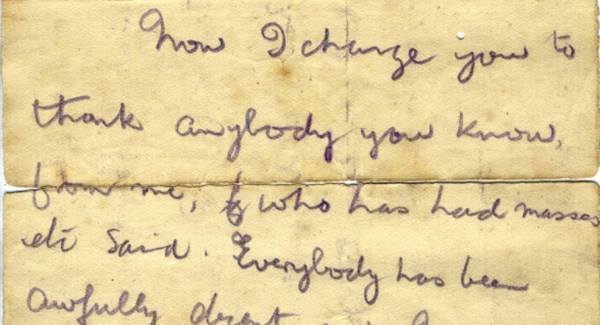 Now I charge you to
thank anybody you know,
from me, who has had masses
etc said. Everybody has been
awfully decent